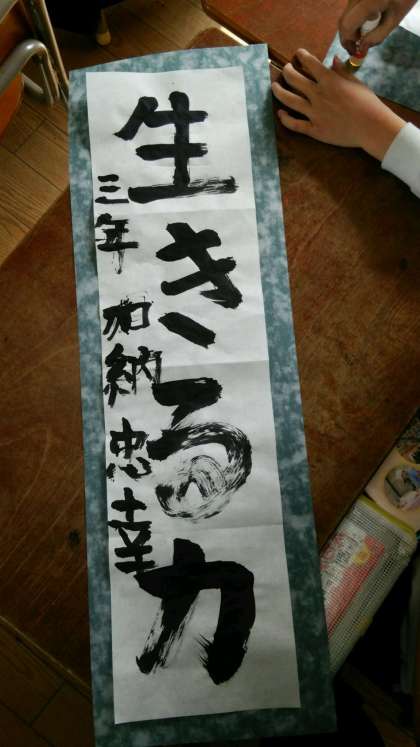 生きる力
三年 加納忠幸